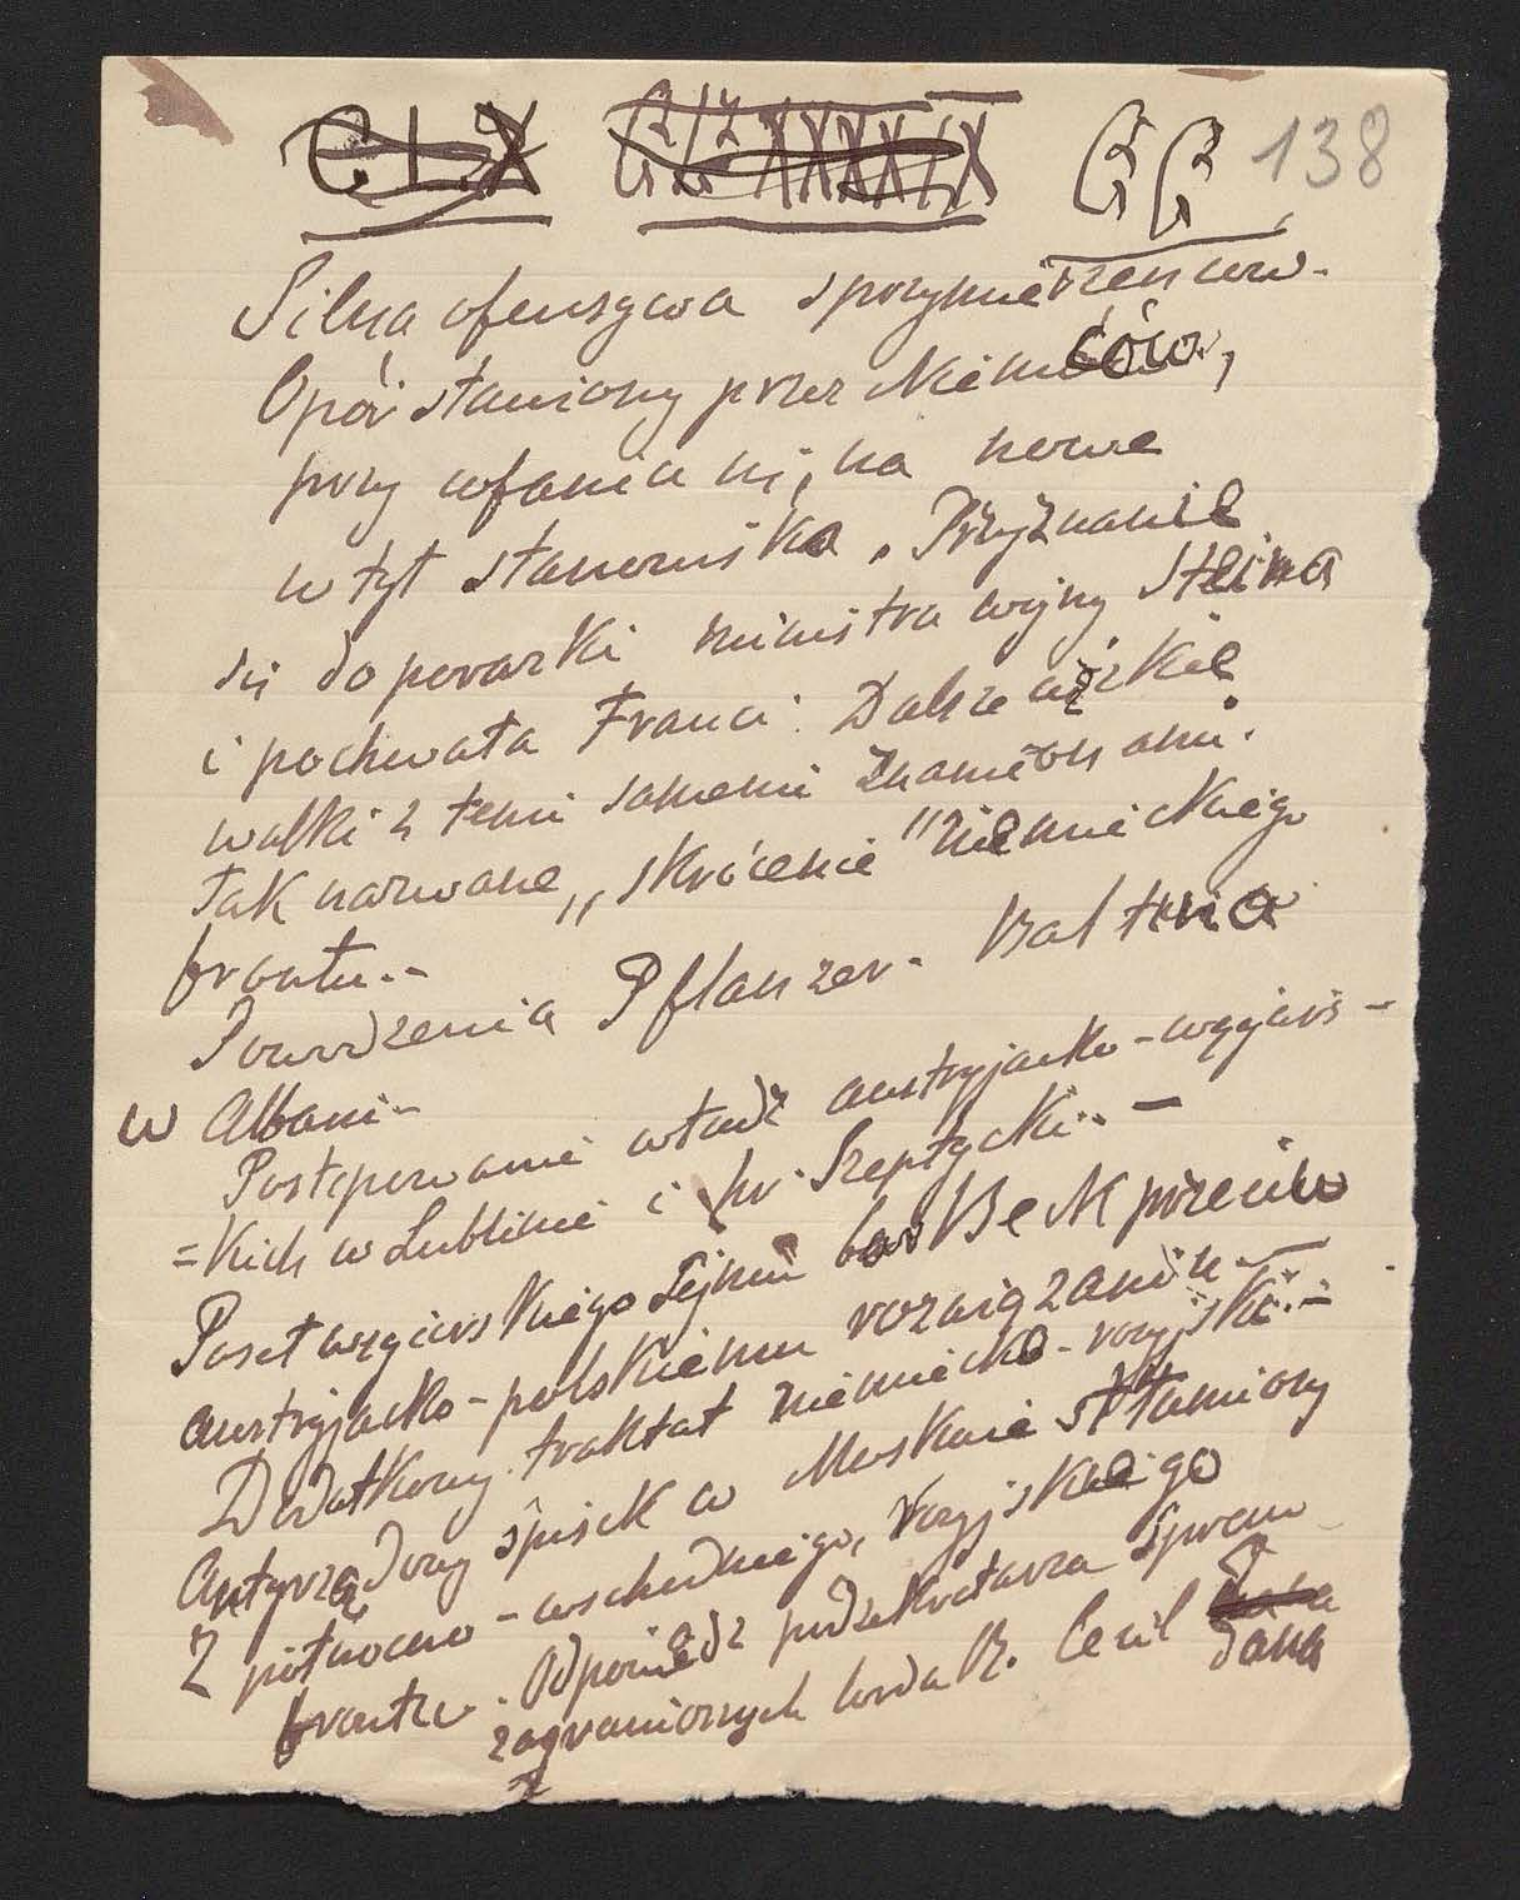 CLX CLXXXXIX CC 138
Silna ofensywa sprzymierzeńców.
Opór stawiony przez Niemców,
przy cofaniu się, na nowe
w tył stanowiska. Przyznanie
się do porażki ministra wojny Steina
i pochwała Francji. Dalsze ciężkie
walki z temi samemi znamionami.
Tak nazwane „skrócenie" niemieckiego
frontu.-
Powodzenia Pflanzer-Baltina
w Albanii-
Postępowanie władz austryjacko-węgiers-
=kich w Lublinie i hr. Szeptycki.. -
Poseł węgierskiego Sejmu bar Bek przeciw
austryjacko-polskiemu rozwiązaniu. -
Dodatkowy traktat niemiecko-rosyjski.-
Antyrządowy spisek w Moskwie stłamiony
Z północno-wschodniego, rosyjskiego
frontu. Odpowiedź podsekretarza spraw
zagranicznych lorda R. Cecil
dana